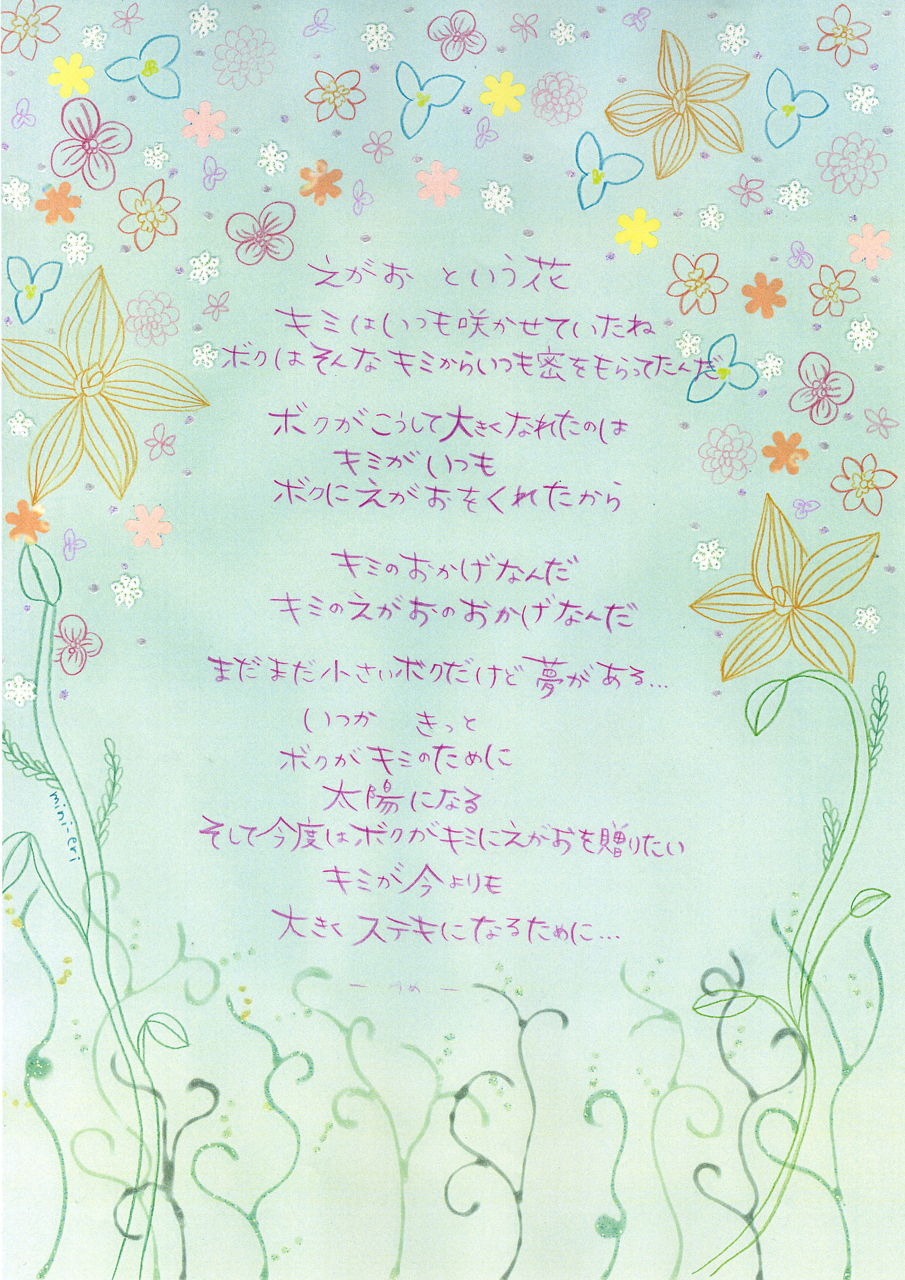 えがお という花
キミはいつも咲かせていたね
ボクはそんなキミからいつも密をもらってたんだ
ボクがこうして大きくなれたのは
キミがいつも
ボクにえがおをくれたから
キミのおかげなんだ
キミのえがおのおかげなんだ
まだまだ小さいボクだけど夢がある...
いつか きっと
ボクがキミのために
太陽になる
そして今度はボクがキミにえがおを贈りたい
キミが今よりも
大きくステキになるために...
mini-eri